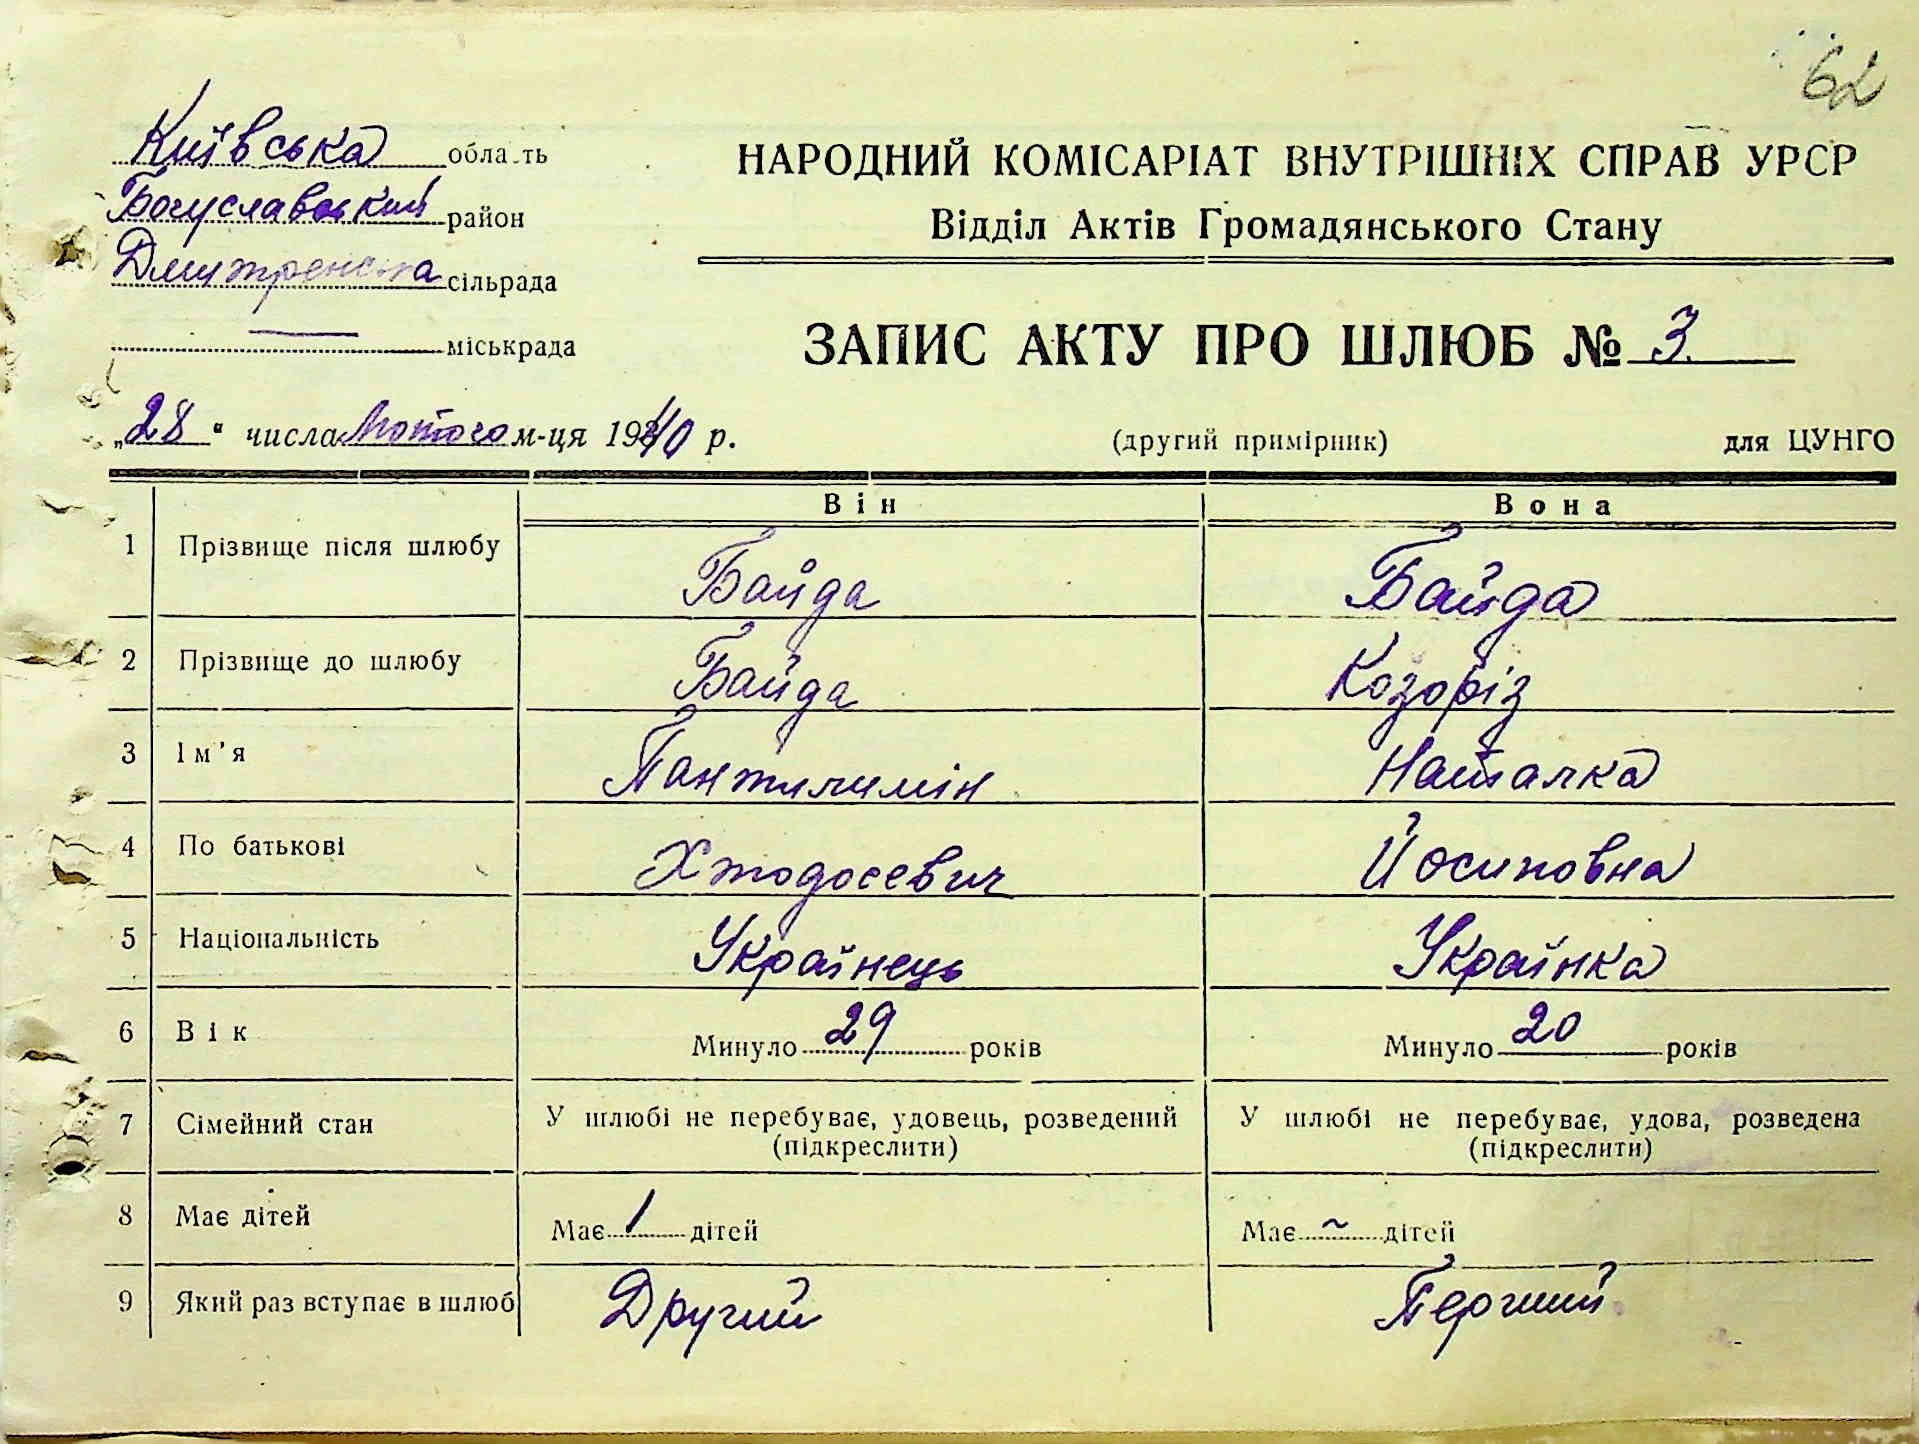 62
Київська область
Богуславський район
Дмитренська сільрада
міськрада
НАРОДНИЙ КОМІСАРІАТ ВНУТРІШНІХ СПРАВ УРСР
Відділ Актів Громадянського Стану
ЗАПИС АКТУ ПРО ШЛЮБ № 3
„28“ числа Лютого м-ця 1940 р.
(другий примірник)
для ЦУНГО
Він Вона
1 Прізвище після шлюбу Байда Байда
2 Прізвище до шлюбу Байда Козоріз
3 Ім’я Пантилимін Наталка
4 По батькові Хтодосевич Йосиповна
5 Національність Українець Українка
6 Вік Минуло 29 років Минуло 20 років
7 Сімейний стан У шлюбі не перебуває, удовець, розведений (підкреслити) У шлюбі не перебуває, удова, розведена (підкреслити)
8 Має дітей Має 1 дітей Має ~ дітей
9 Який раз вступає в шлюб Другий Перший